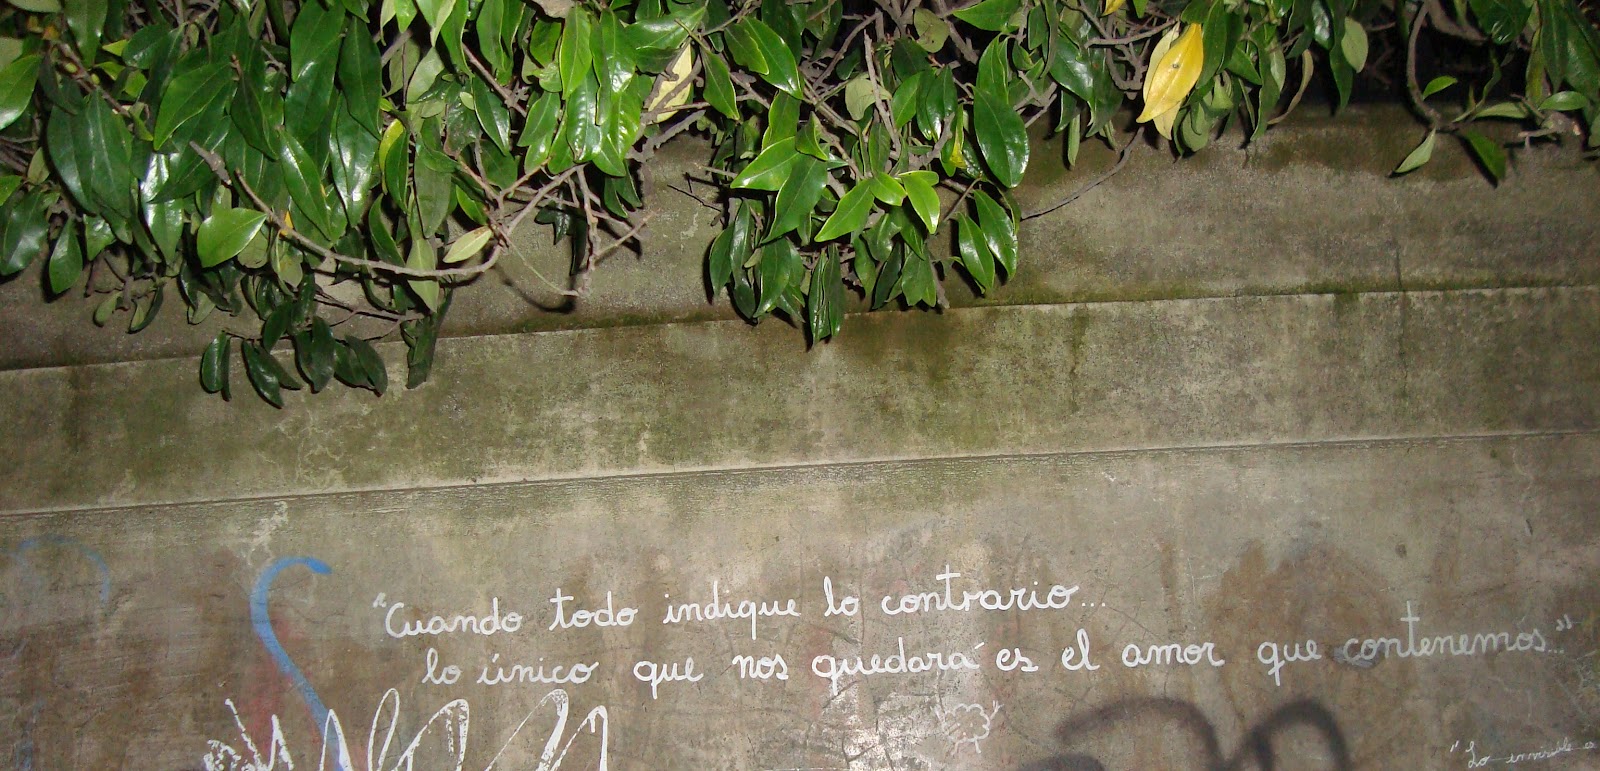 "Cuando todo indique lo contrario...
lo único que nos quedará es el amor que contenemos..."
"Lo invisible es